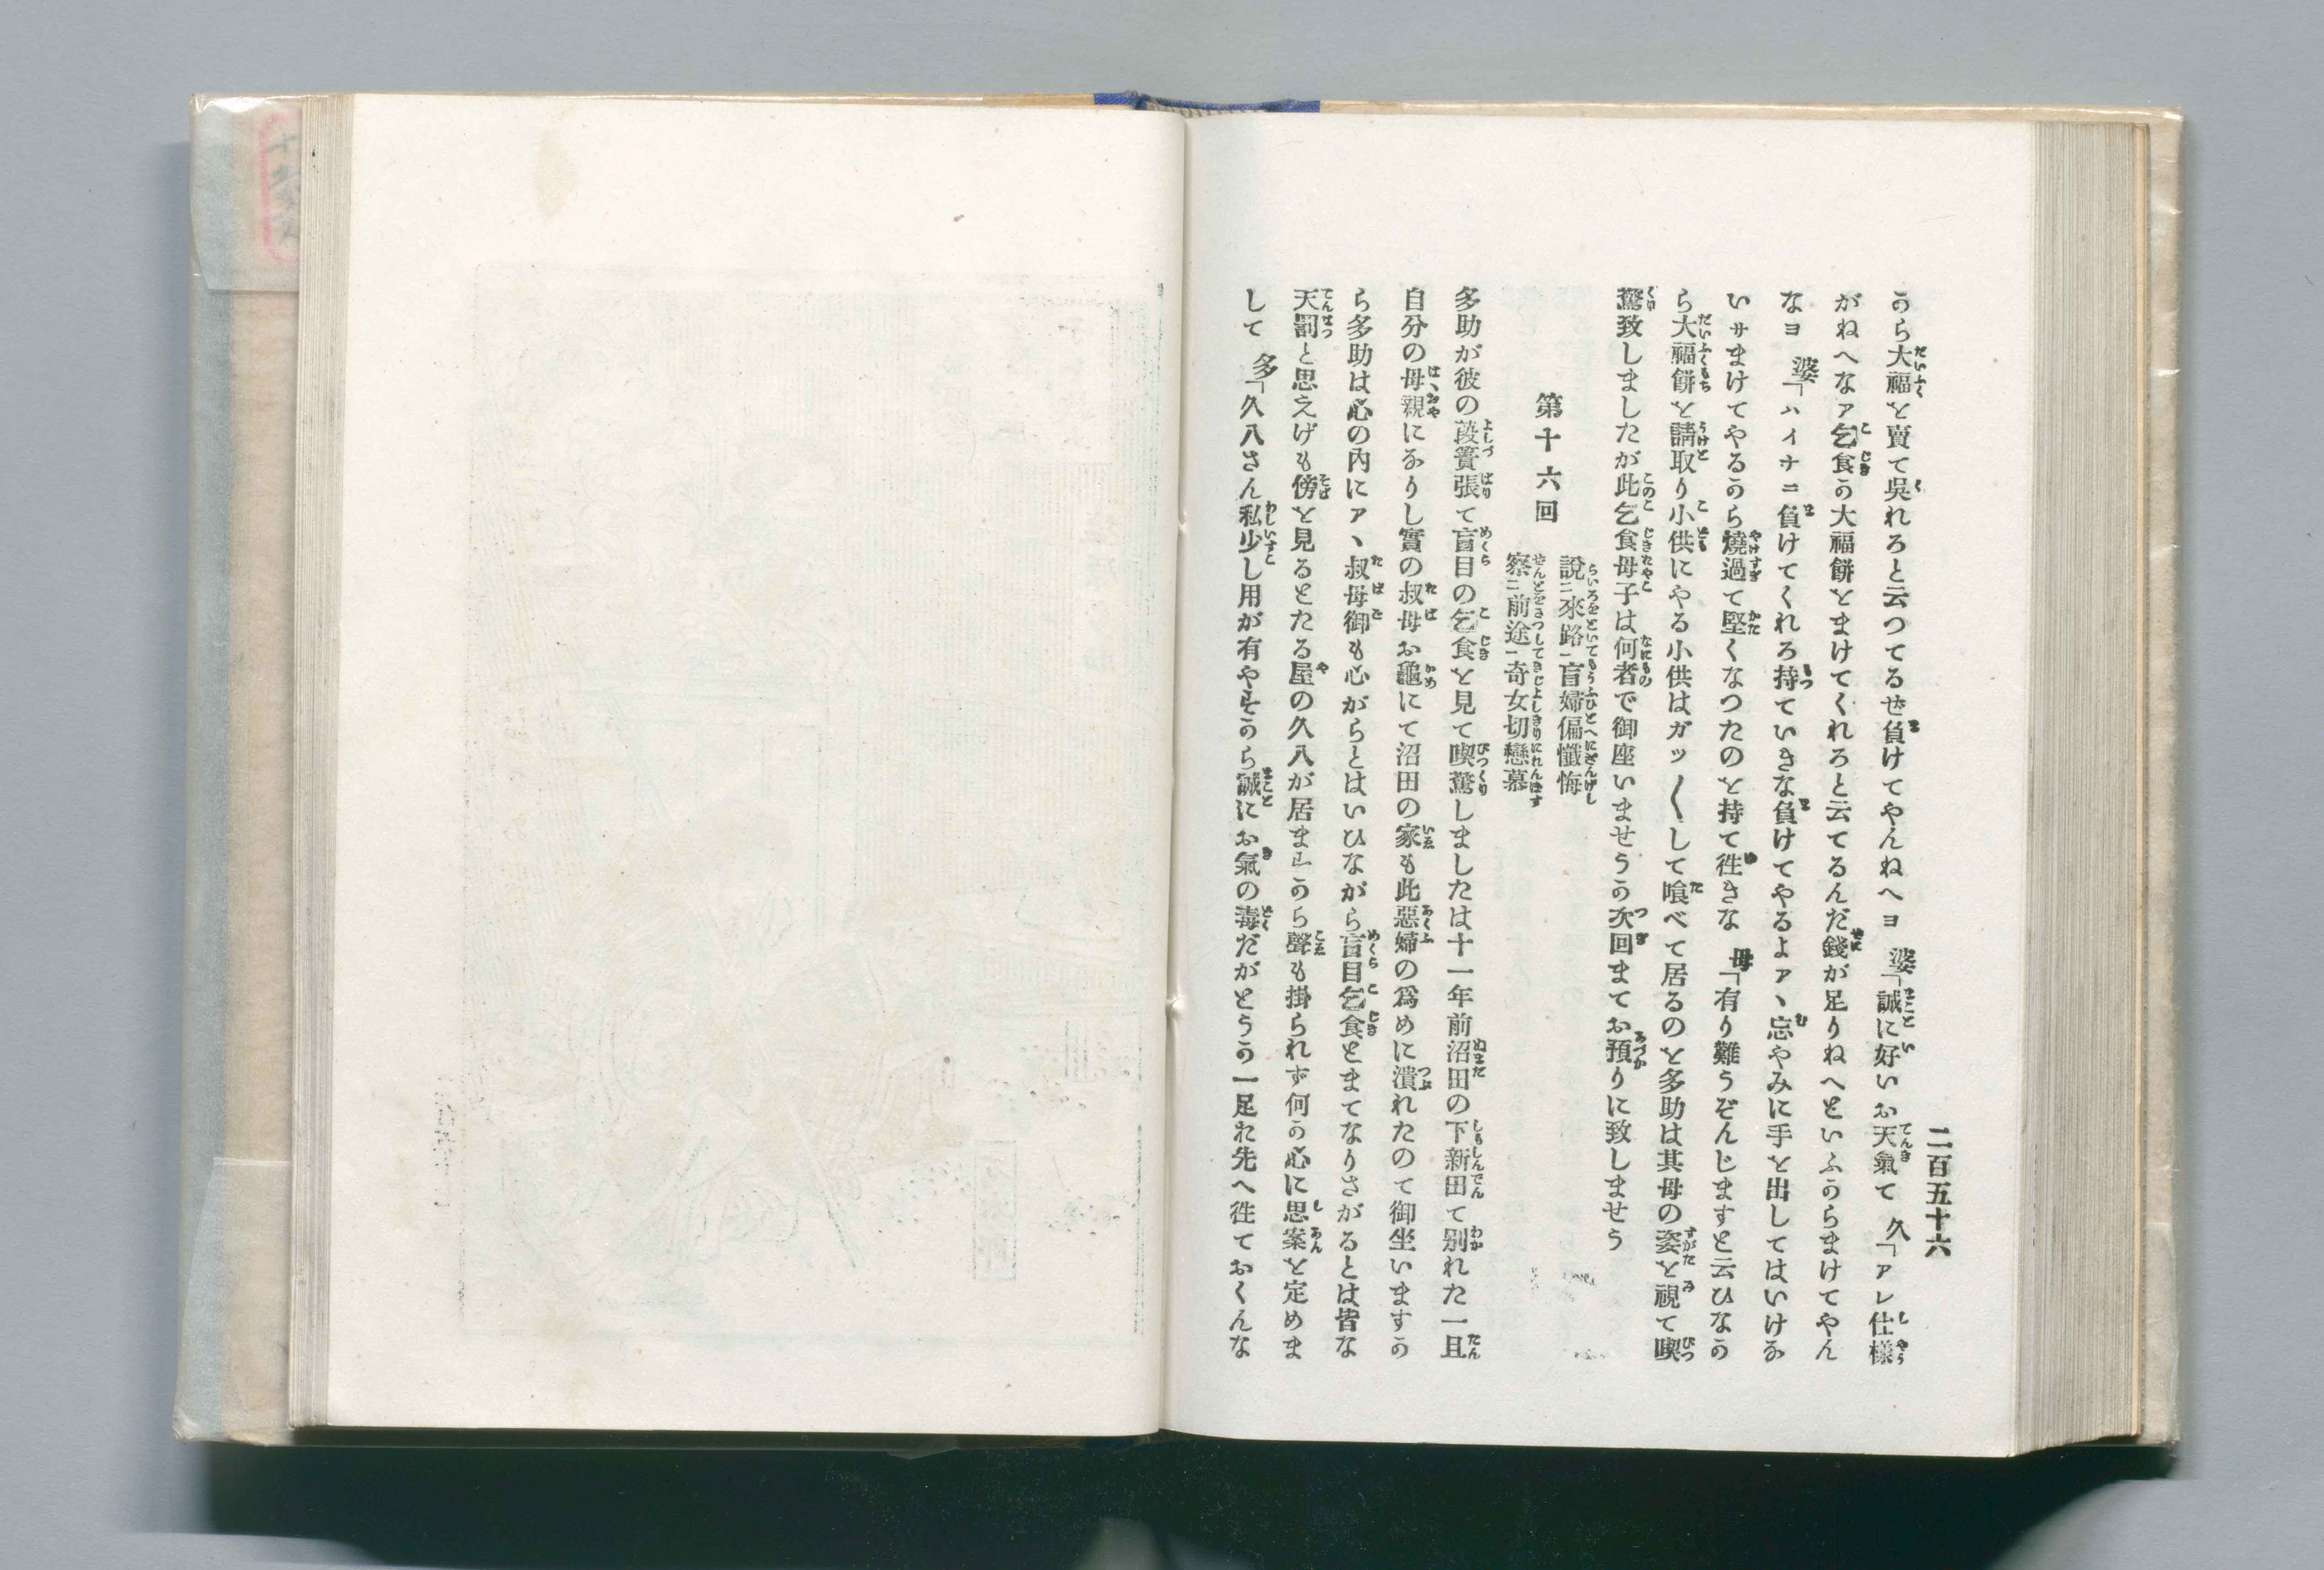 二百五十六
から大福を賣て吳れろと云つてるぜ負けてやんねへヨ 婆「誠に好いお天氣で 久「アレ仕様
がねへなァ乞食が大福餅をまけてくれろと云てるんだ錢が足りねへといふからまけてやん
なヨ 婆「ハイナニ負けてくれろ持ていきな負けてやるよァヽ忘やみに手を出してはいける
いサまけてやるから燒過て堅くなつたのを持て徃きな 母「有り難うぞんじますと云ひなが
ら大福餅を請取り小供にやる小供はガツ〱して喰べて居るのを多助は其母の姿を視て喫
驚致しましたが此乞食母子は何者で御座いませうか次回までお預りに致しませう
第十六回
說二來路一盲婦偏懺悔
察二前途一奇女切戀慕
多助が彼の葭簀張で盲目の乞食を見て喫驚しましたは十一年前沼田の下新田で別れた一旦
自分の母親になりし實の叔母お龜にて沼田の家も此惡婦の爲めに潰れたので御坐いますか
ら多助は心の內にアヽ叔母御も心がらとはいひながら盲目乞食とまでなりさがるとは皆な
天罰と思えども傍を見るとたる屋の久八が居ますから聲も掛られず何か心に思案を定めま
して 多「久八さん私少し用が有やすから誠にお氣の毒だがどうか一足お先へ徃ておくんな